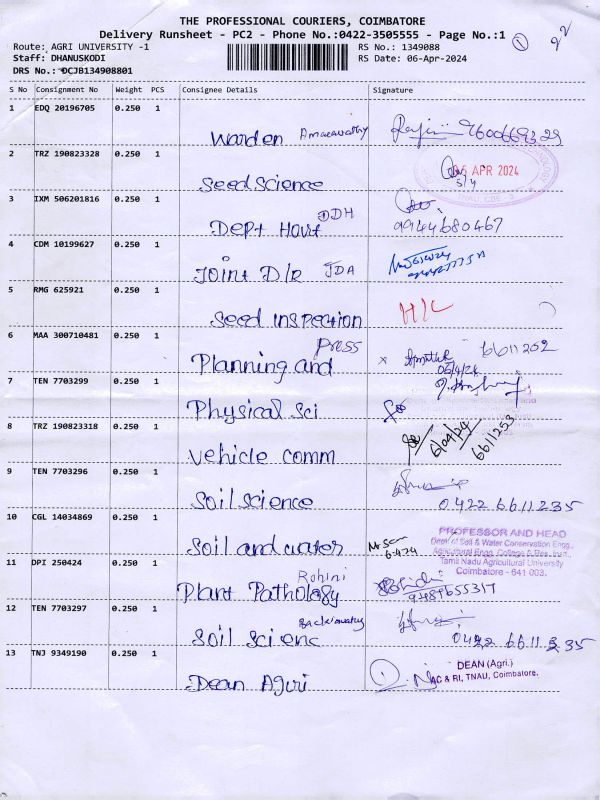 THE PROFESSIONAL COURIERS, COIMBATORE
Delivery Runsheet - PC2 - Phone No.:0422-3505555 - Page No.:1
Route: AGRI UNIVERSITY -1
RS No.: 1349088
Staff: DHANUSKODI
RS Date: 06-Apr-2024
DRS No.: DCJB134908801
S No Consignment No Weight PCS Consignee Details Signature
1 EDQ 20196705 0.250 1
Warden
2 TRZ 190823328 0.250 1
APR 2024
Seed Science
3 IXM 506201816 0.250 1
DDH
Dept Hort 9944680467
4 CDM 10199627 0.250 1
Joint D/R JDA
5 RMG 625921 0.250 1
H/C
Seed Inspection
6 MAA 300710481 0.250 1
Press 6611202
Planning and 06/4/24
7 TEN 7703299 0.250 1
Physical Sci
8 TRZ 190823318 0.250 1
6/04/24 6611253
Vehicle comm
9 TEN 7703296 0.250 1
Soil Science 0422 6611235
10 CGL 14034869 0.250 1
PROFESSOR AND HEAD
Dept of Soil & Water Conservation Engg.,
Soil and water
Agricultural Engg. College & Res. Inst.,
Tamil Nadu Agricultural University
Coimbatore - 641 003.
11 DPI 250424 0.250 1
Rohini
Plant Pathology 9489655317
12 TEN 7703297 0.250 1
Soil Scienc 0422 6611 235
13 TNJ 9349190 0.250 1
DEAN (Agri.)
AC & RI, TNAU, Coimbatore.
Dean Agiri